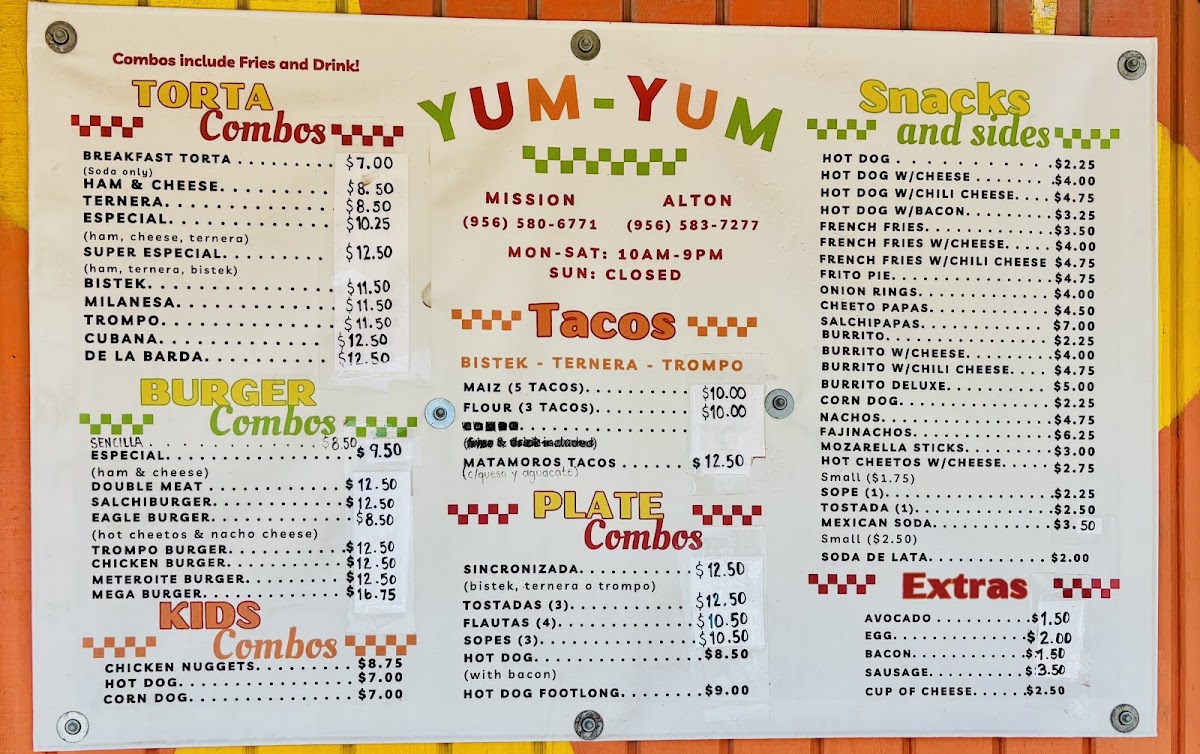 Combos include Fries and Drink!
TORTA
Combos
BREAKFAST TORTA . . . . . . . . . $7.00
(Soda only)
HAM & CHEESE. . . . . . . . . . $8.50
TERNERA. . . . . . . . . . . . . . . $8.50
ESPECIAL. . . . . . . . . . . . . . . $10.25
(ham, cheese, ternera)
SUPER ESPECIAL. . . . . . . . . $12.50
(ham, ternera, bistek)
BISTEK. . . . . . . . . . . . . . . . . $11.50
MILANESA. . . . . . . . . . . . . . $11.50
TROMPO. . . . . . . . . . . . . . . $11.50
CUBANA. . . . . . . . . . . . . . . $12.50
DE LA BARDA. . . . . . . . . . . $12.50
BURGER
Combos
SENCILLA . . . . . . . . . . . . . . $8.50
ESPECIAL. . . . . . . . . . . . . . . $9.50
(ham & cheese)
DOUBLE MEAT . . . . . . . . . . $12.50
SALCHIBURGER. . . . . . . . . . $12.50
EAGLE BURGER. . . . . . . . . . $8.50
(hot cheetos & nacho cheese)
TROMPO BURGER. . . . . . . . . $12.50
CHICKEN BURGER. . . . . . . . $12.50
METEROITE BURGER. . . . . . . $12.50
MEGA BURGER. . . . . . . . . . . $16.75
KIDS
Combos
CHICKEN NUGGETS. . . . . . . . $8.75
HOT DOG. . . . . . . . . . . . . . . $7.00
CORN DOG. . . . . . . . . . . . . $7.00
YUM-YUM
MISSION ALTON
(956) 580-6771 (956) 583-7277
MON-SAT: 10AM-9PM
SUN: CLOSED
Tacos
BISTEK - TERNERA - TROMPO
MAIZ (5 TACOS). . . . . . . . . . $10.00
FLOUR (3 TACOS). . . . . . . . . $10.00
MATAMOROS TACOS . . . . . . $12.50
(c/queso y aguacate)
PLATE
Combos
SINCRONIZADA. . . . . . . . . . $12.50
(bistek, ternera o trompo)
TOSTADAS (3). . . . . . . . . . . $12.50
FLAUTAS (4). . . . . . . . . . . . $10.50
SOPES (3). . . . . . . . . . . . . . $10.50
HOT DOG. . . . . . . . . . . . . . $8.50
(with bacon)
HOT DOG FOOTLONG. . . . . . . $9.00
Snacks
and sides
HOT DOG . . . . . . . . . . . . . $2.25
HOT DOG W/CHEESE . . . . . . . $4.00
HOT DOG W/CHILI CHEESE. . . . $4.75
HOT DOG W/BACON. . . . . . . . $3.25
FRENCH FRIES. . . . . . . . . . . $3.50
FRENCH FRIES W/CHEESE. . . . . $4.00
FRENCH FRIES W/CHILI CHEESE $4.75
FRITO PIE. . . . . . . . . . . . . . $4.75
ONION RINGS. . . . . . . . . . . $4.00
CHEETO PAPAS. . . . . . . . . . . $4.50
SALCHIPAPAS. . . . . . . . . . . . $7.00
BURRITO. . . . . . . . . . . . . . . $2.25
BURRITO W/CHEESE. . . . . . . . $4.00
BURRITO W/CHILI CHEESE. . . . $4.75
BURRITO DELUXE. . . . . . . . . $5.00
CORN DOG. . . . . . . . . . . . . $2.25
NACHOS. . . . . . . . . . . . . . . $4.75
FAJINACHOS. . . . . . . . . . . . $6.25
MOZARELLA STICKS. . . . . . . . $3.00
HOT CHEETOS W/CHEESE. . . . . $2.75
Small ($1.75)
SOPE (1). . . . . . . . . . . . . . . $2.25
TOSTADA (1). . . . . . . . . . . . $2.50
MEXICAN SODA. . . . . . . . . . $3.50
Small ($2.50)
SODA DE LATA. . . . . . . . . . . $2.00
Extras
AVOCADO . . . . . . . . . . $1.50
EGG. . . . . . . . . . . . . . $2.00
BACON. . . . . . . . . . . . $1.50
SAUSAGE. . . . . . . . . . $3.50
CUP OF CHEESE. . . . . . $2.50